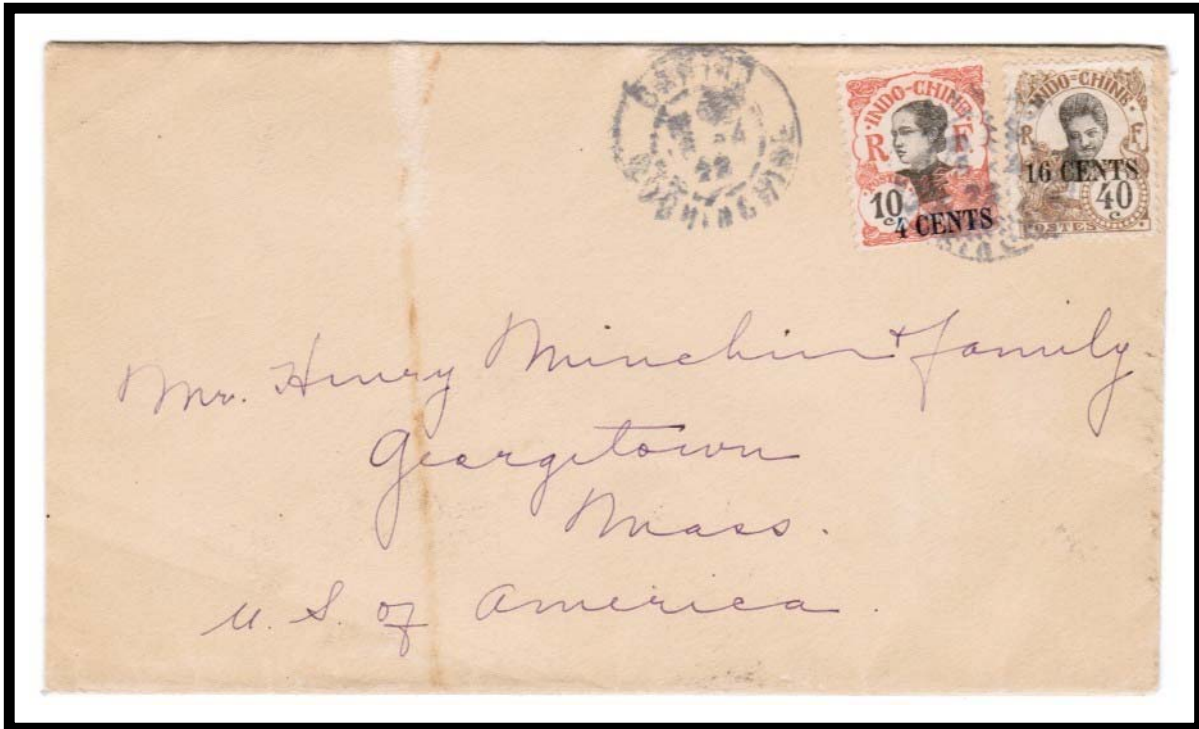 22
INDO-CHINE
R F
POSTES
10
c
4 CENTS
INDO=CHINE
R F
16 CENTS
40
c
POSTES
Mr. Henry Minchin + family
Georgetown
Mass.
U. S. of America.